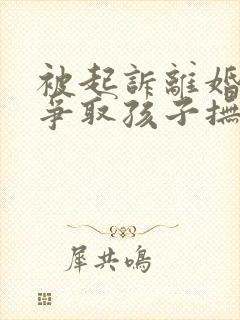 被起訴離婚
爭取孩子撫
犀共鳴